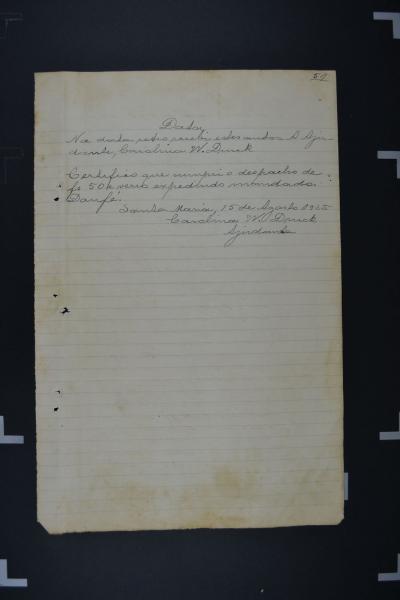 57
Data
Na data retro recebi estes autos. A Aju-
dante, Carolina W. Druck
Certifico que cumpri o despacho de
fs 50 verso expedindo mandado.
Dou fé.
Santa Maria, 15 de Agosto 1925
Carolina W. Druck
Ajudante